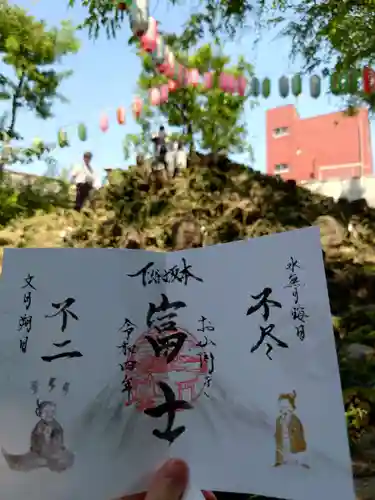 水無月晦日
不尽
下谷坂本
お山開き
富士
令和四年
不二
文月朔日